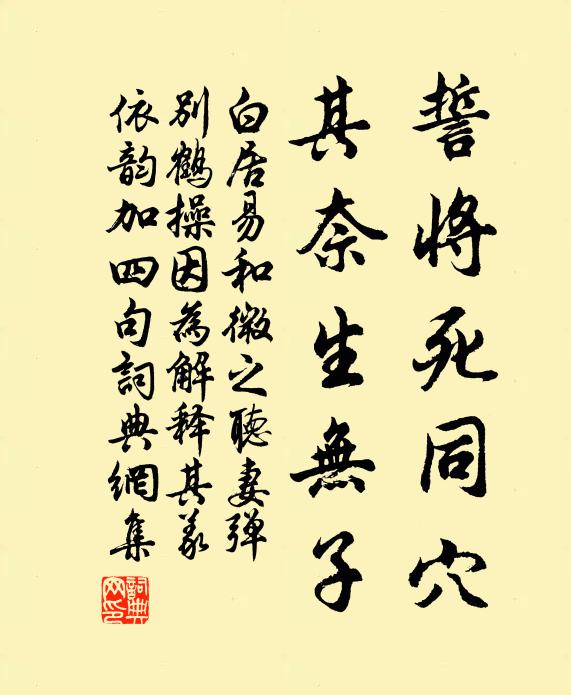 誓將死同穴
其奈生無子
白居易和微之聽妻弹
别鶴操因為解釋其义
依韵加四句詞典網集
詞典
网印